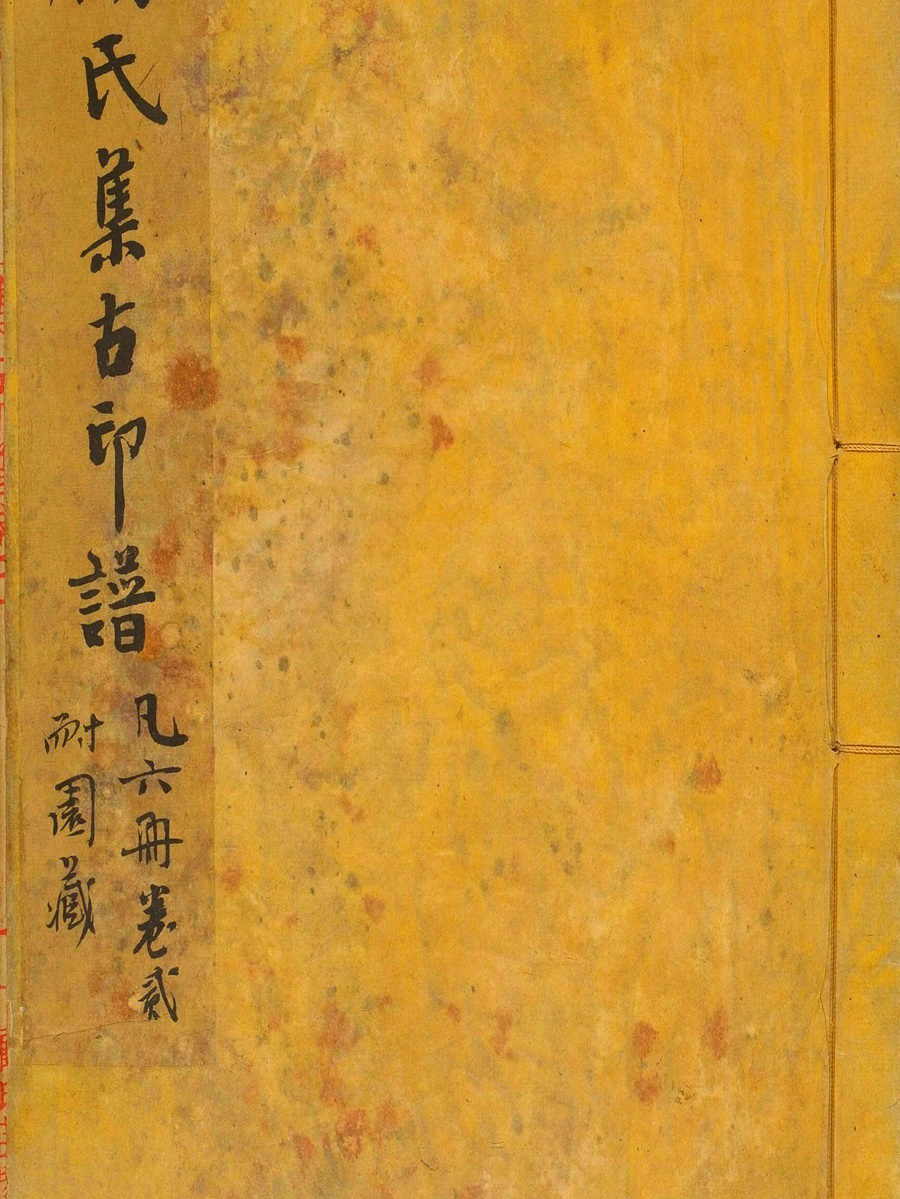 氏集古印譜
凡六冊卷貳
耐園藏